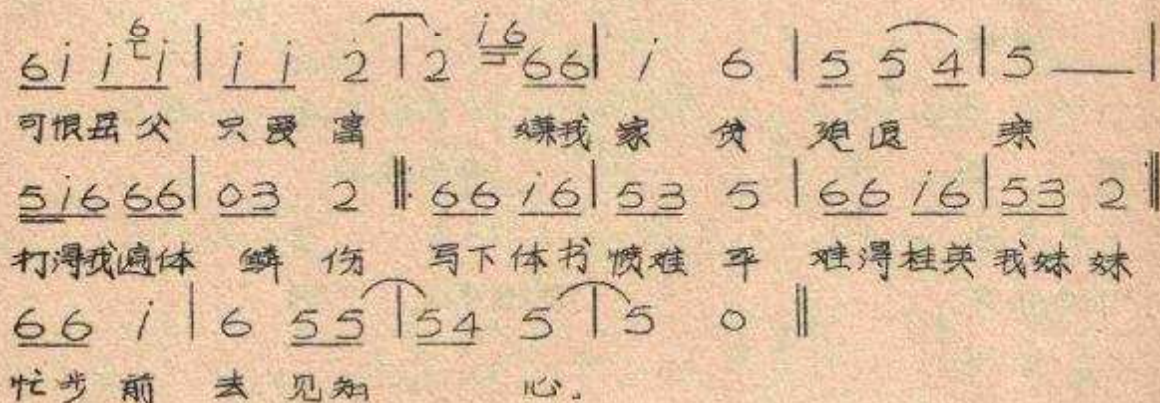 6i i 6 i | i i 2̇ | 2̇ i6 66 | i 6 | 5 5 4 | 5 — |
可恨岳父 只爱富 嫌我家贫 逼退 亲
5i6 66 | 03 2 ‖: 66 i6 | 53 5 | 66 i6 | 53 2 ‖
打得我遍体 鳞伤 写下休书愤难平 难得桂英我妹妹
66 i | 6 55 | 54 5 | 5 0 ‖
忙步前 去见知 心。